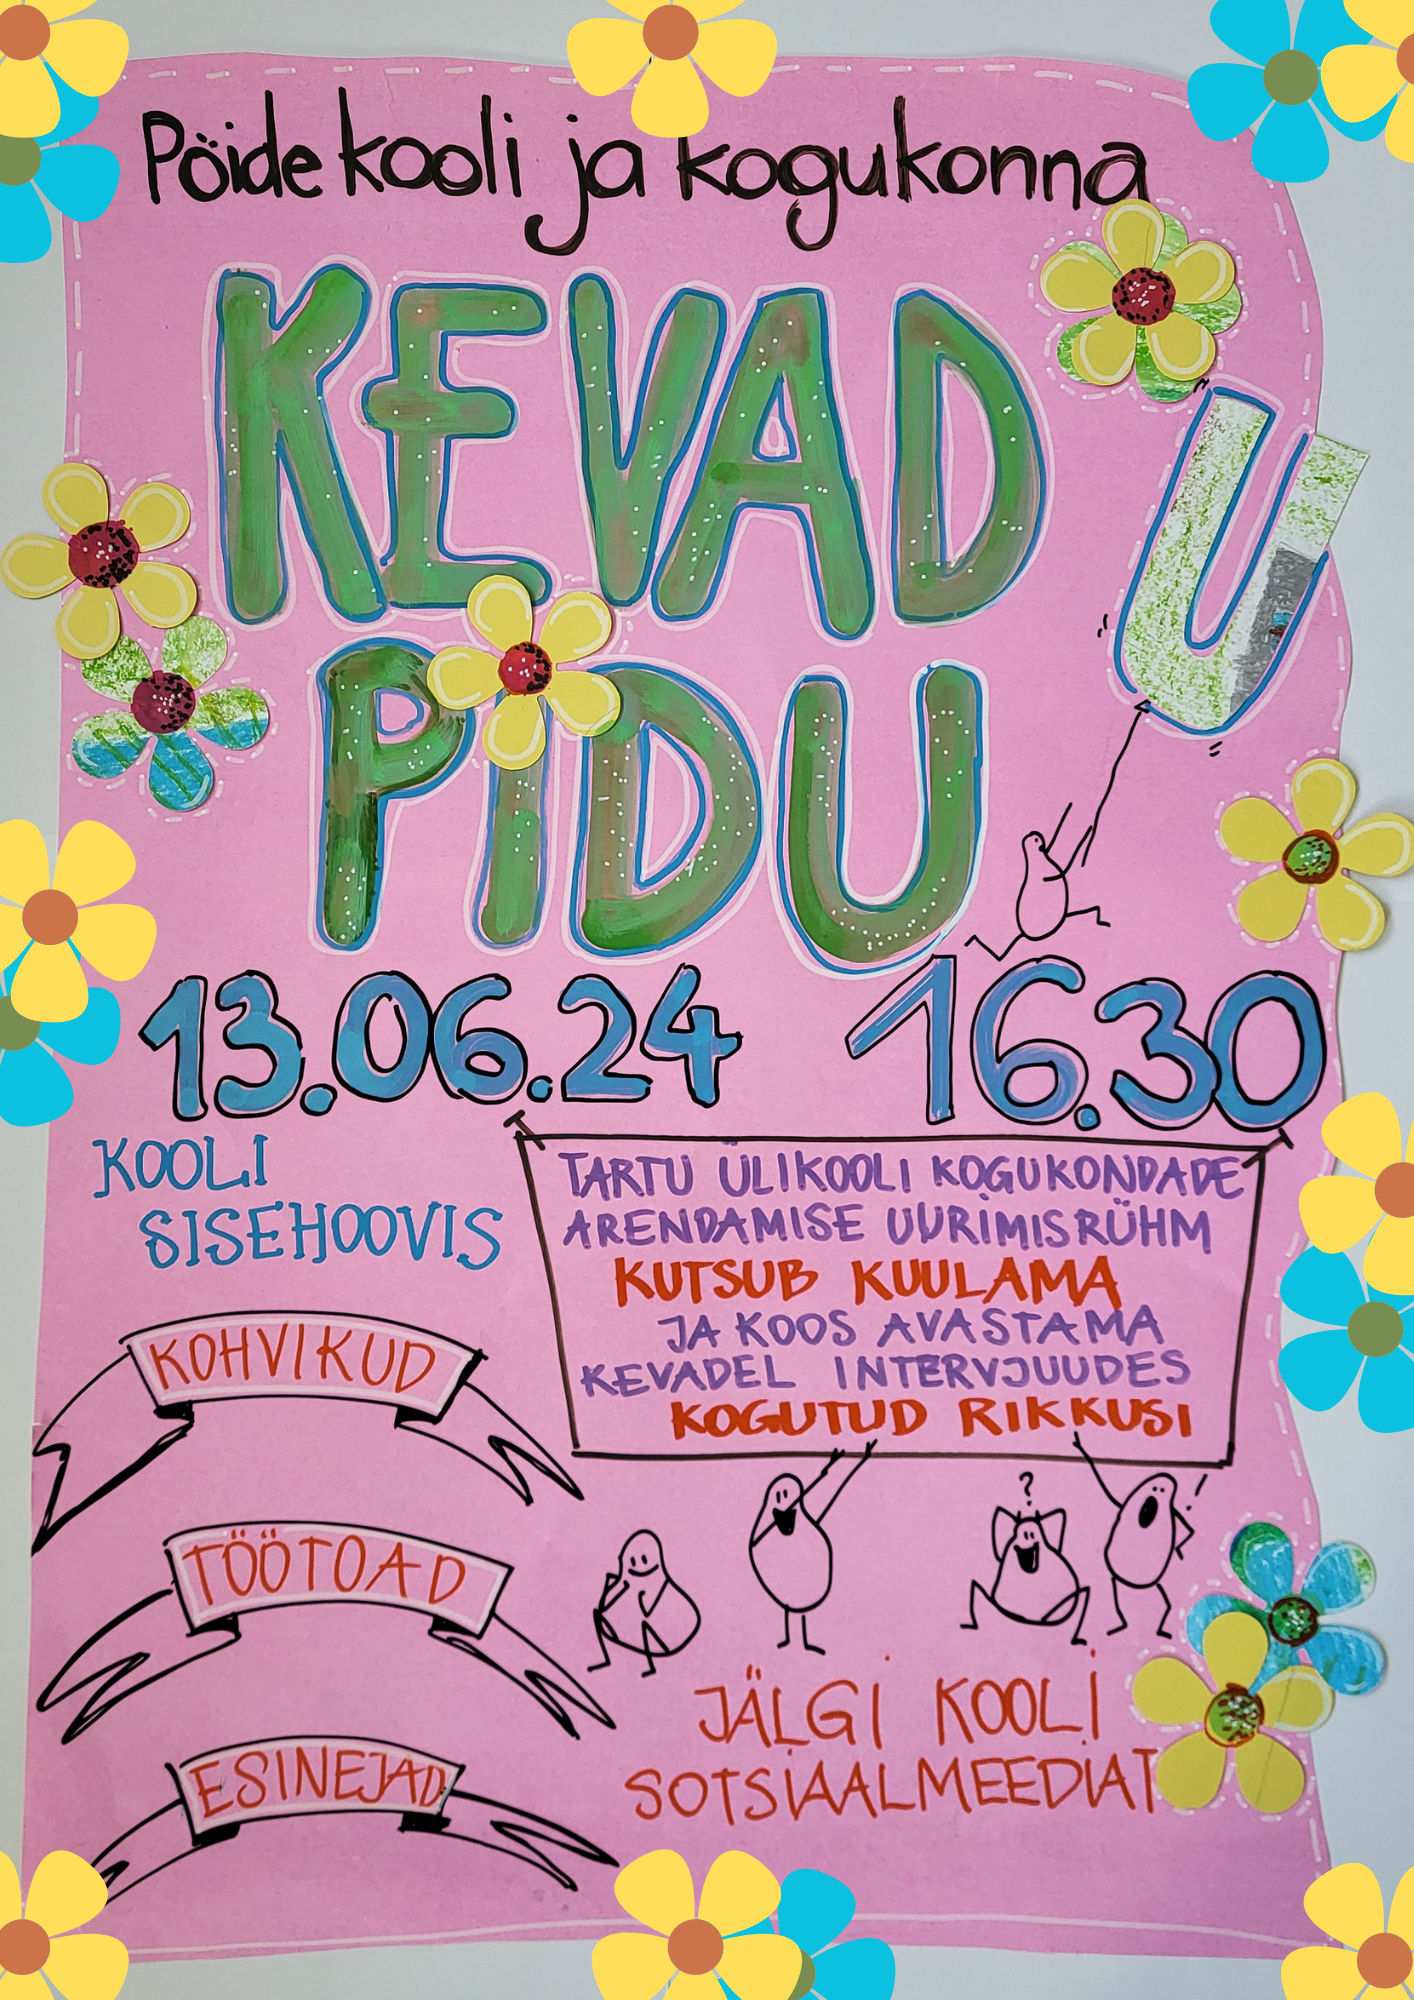 Pöide kooli ja kogukonna
KEVAD
U
PIDU
13.06.24 16.30
KOOLI
SISEHOOVIS
TARTU ÜLIKOOLI KOGUKONDADE
ARENDAMISE UURIMISRÜHM
KUTSUB KUULAMA
JA KOOS AVASTAMA
KEVADEL INTERVJUUDES
KOGUTUD RIKKUSI
KOHVIKUD
TÖÖTOAD
ESINEJAD
?
!
JÄLGI KOOLI
SOTSIAALMEEDIAT